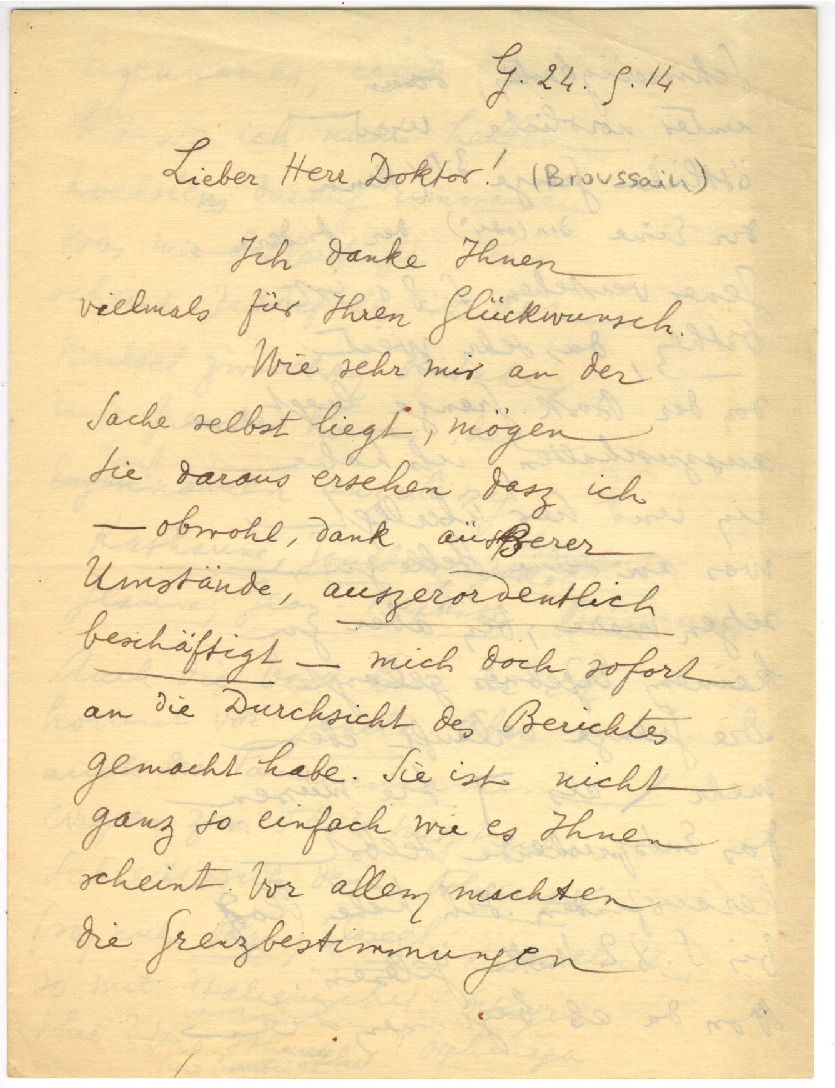 G. 24. 9. 14
Lieber Herr Doktor! (Broussain)
Ich danke Ihnen
vielmals für Ihren Glückwunsch.
Wie sehr mir an der
Sache selbst liegt, mögen
Sie daraus ersehen, dasz ich
— obwohl, dank äusserer
Umstände, auszerordentlich
beschäftigt — mich doch sofort
an die Durchsicht des Berichtes
gemacht habe. Sie ist nicht
ganz so einfach wie es Ihnen
scheint. Vor allem machten
die Grenzbestimmungen